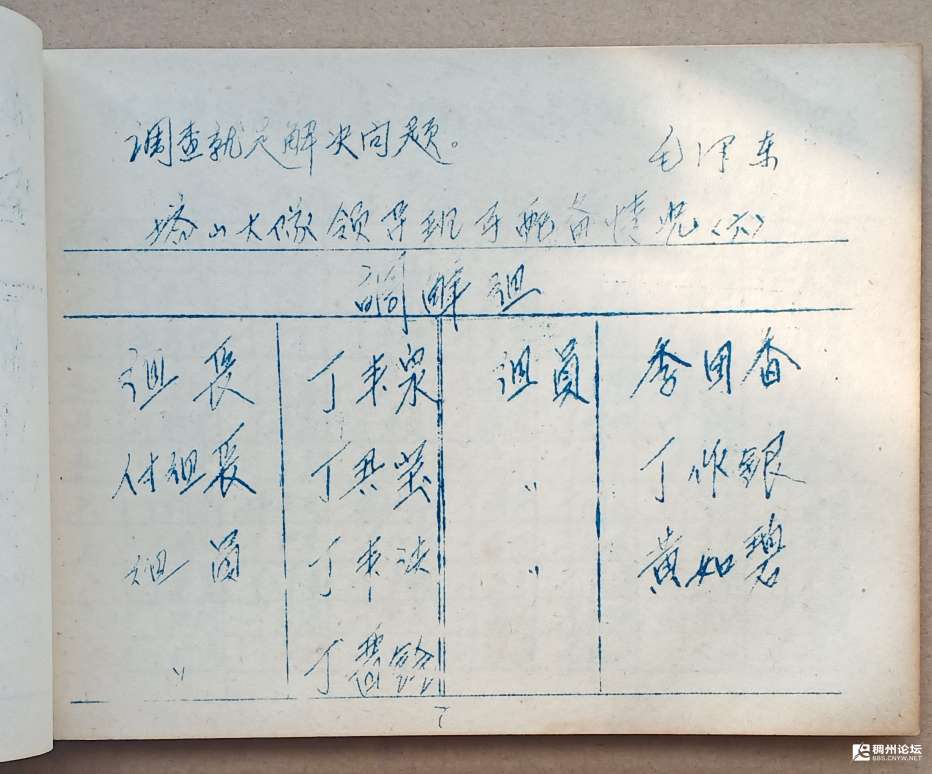 调查就是解决问题。 毛泽东
塔山大队领导班子配备情况〈六〉
調解组
组長 丁来泉 组員 李团香
付组長 丁其 〃 丁作銀
组員 丁来法 〃 黄如碧
〃 丁
7
稠州论坛
BBS.CNYW.NET